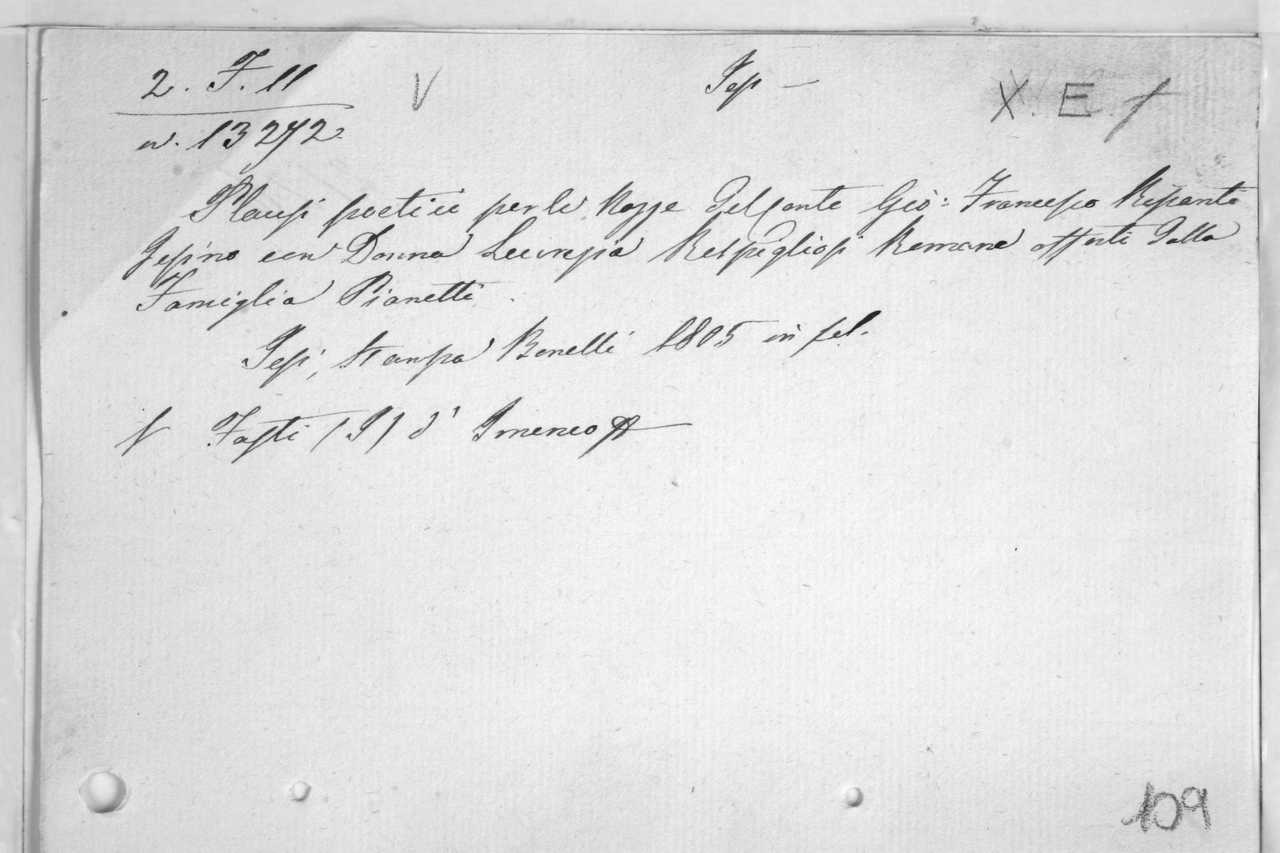 2. F. 11 V Jesi — X. E. f
n. 13272.
Plausi poetici per le Nozze del Conte Gio: Francesco Ripanti
Jesino con Donna Lucrezia Rospigliosi Romana offerti dalla
Famiglia Pianetti.
Jesi, Stampa Bonelli 1805 in fol.
V Fasti (I) d' Imeneo
109